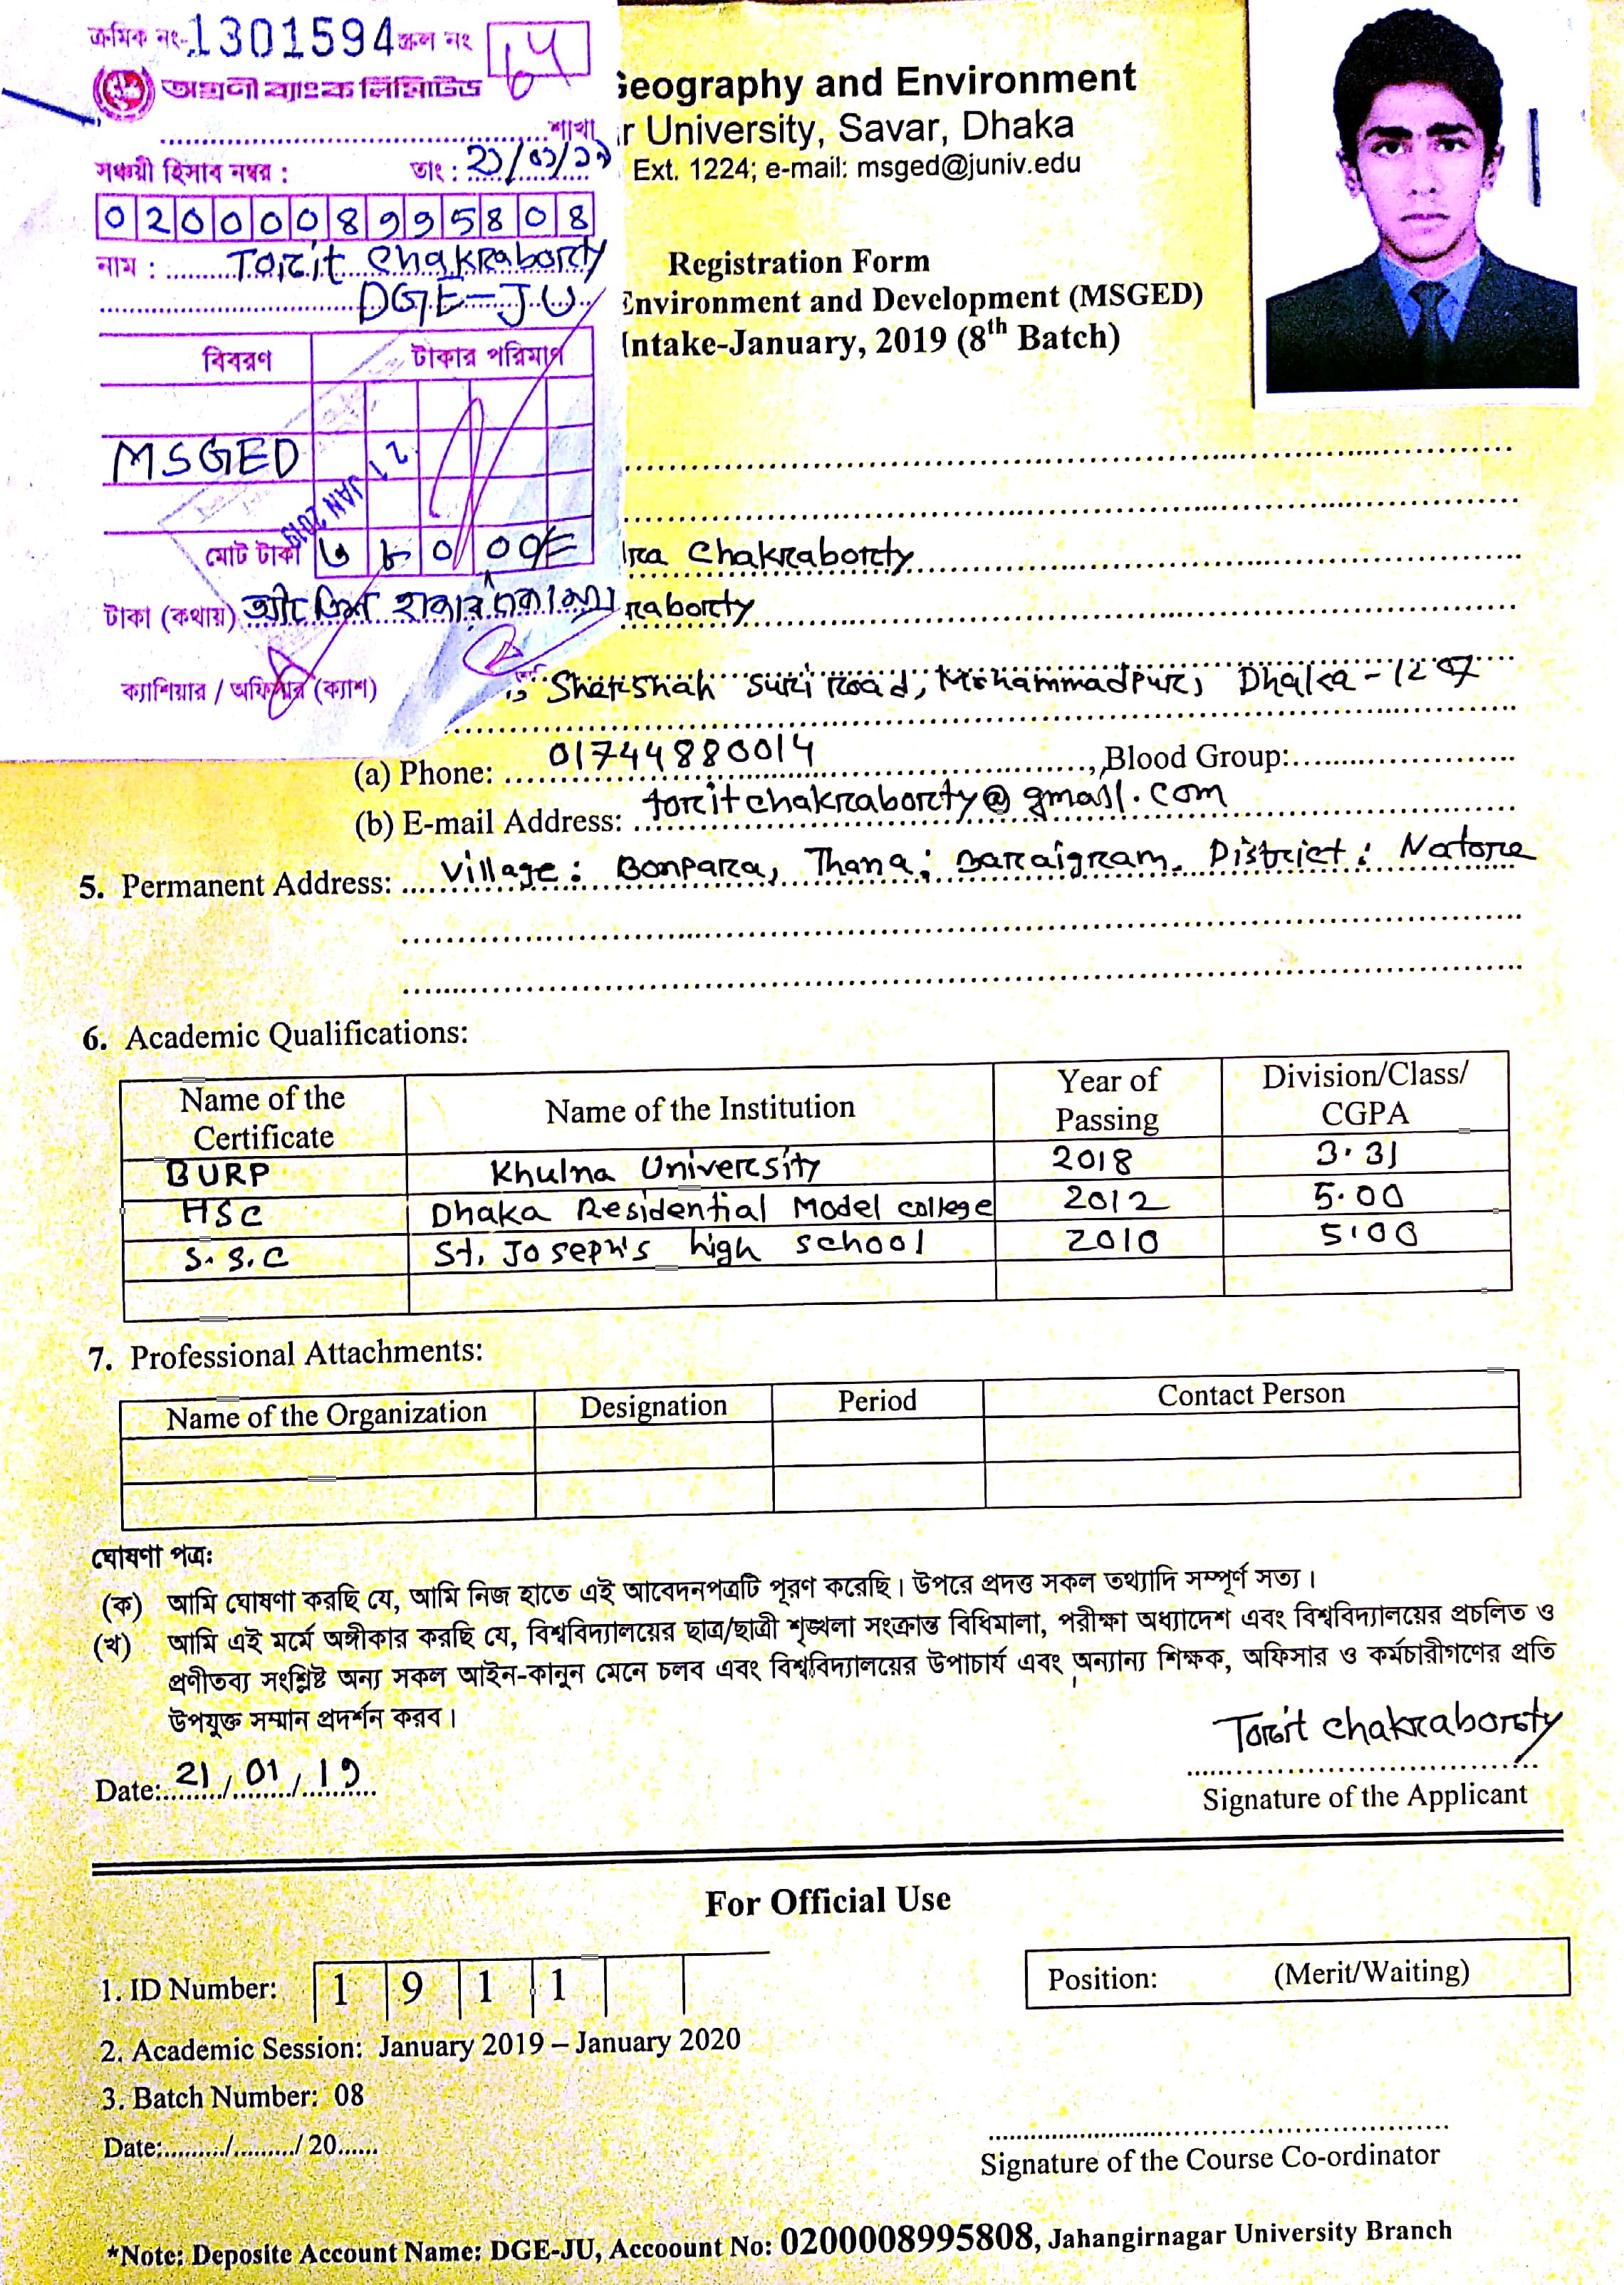 ক্রমিক নং- 1301594 স্ক্রল নং
অগ্রনী ব্যাংক লিমিটেড
শাখা
সঞ্চয়ী হিসাব নম্বর : তাং : ২১/০১/১৯
0200008995808
নাম : Torit Chakraborty
DGE-JU
বিবরণ টাকার পরিমাণ
MSGED
21 JAN 2019
মোট টাকা
টাকা (কথায়)
ক্যাশিয়ার / অফিসার (ক্যাশ)
Geography and Environment
r University, Savar, Dhaka
Ext. 1224; e-mail: msged@juniv.edu
Registration Form
Environment and Development (MSGED)
Intake-January, 2019 (8th Batch)
dra Chakraborty
raborty
Shershah Suri Road, Mohammadpur, Dhaka-1207
(a) Phone: 01744880014, Blood Group:
(b) E-mail Address: toritchakraborty@gmail.com
5. Permanent Address: Village: Bonpara, Thana: Baraigram. District: Natore
6. Academic Qualifications:
Name of the Certificate Name of the Institution Year of Passing Division/Class/ CGPA
BURP Khulna University 2018 3.31
HSC Dhaka Residential Model college 2012 5.00
S.S.C St. Joseph's high school 2010 5.00
7. Professional Attachments:
Name of the Organization Designation Period Contact Person
ঘোষণা পত্র:
(ক) আমি ঘোষণা করছি যে, আমি নিজ হাতে এই আবেদনপত্রটি পূরণ করেছি। উপরে প্রদত্ত সকল তথ্যাদি সম্পূর্ণ সত্য।
(খ) আমি এই মর্মে অঙ্গীকার করছি যে, বিশ্ববিদ্যালয়ের ছাত্র/ছাত্রী শৃঙ্খলা সংক্রান্ত বিধিমালা, পরীক্ষা অধ্যাদেশ এবং বিশ্ববিদ্যালয়ের প্রচলিত ও
প্রণীতব্য সংশ্লিষ্ট অন্য সকল আইন-কানুন মেনে চলব এবং বিশ্ববিদ্যালয়ের উপাচার্য এবং অন্যান্য শিক্ষক, অফিসার ও কর্মচারীগণের প্রতি
উপযুক্ত সম্মান প্রদর্শন করব।
Torit Chakraborty
Date: 21/01/19
Signature of the Applicant
For Official Use
1. ID Number: 1 9 1 1
Position: (Merit/Waiting)
2. Academic Session: January 2019 – January 2020
3. Batch Number: 08
Date:........./........./ 20......
Signature of the Course Co-ordinator
*Note: Deposite Account Name: DGE-JU, Accoount No: 0200008995808, Jahangirnagar University Branch